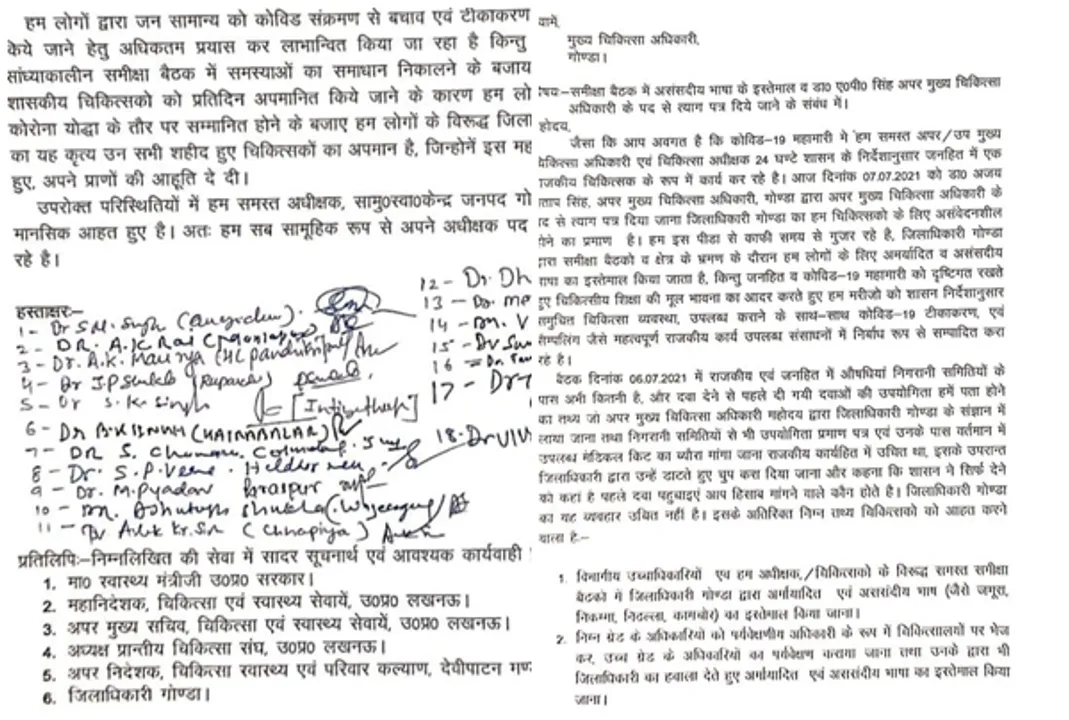 हम लोगों द्वारा जन सामान्य को कोविड संक्रमण से बचाव एवं टीकाकरण
किये जाने हेतु अधिकतम प्रयास कर लाभान्वित किया जा रहा है किन्तु
सांध्याकालीन समीक्षा बैठक में समस्याओं का समाधान निकालने के बजाय
शासकीय चिकित्सको को प्रतिदिन अपमानित किये जाने के कारण हम लो
कोरोना योद्धा के तौर पर सम्मानित होने के बजाए हम लोगों के विरूद्ध जिला
का यह कृत्य उन सभी शहीद हुए चिकित्सकों का अपमान है, जिन्होनें इस मह
हुए, अपने प्राणों की आहूति दे दी।
उपरोक्त परिस्थितियों में हम समस्त अधीक्षक, सामु0स्वा0केन्द्र जनपद गो
मानसिक आहत हुए है। अतः हम सब सामूहिक रूप से अपने अधीक्षक पद
रहे है।
हस्ताक्षरः-
1- Dr S.N. Singh
2- DR. A.K Rai
3- Dr. A.K. Maurya
4- Dr J.P Shukla
5- Dr S.K. Singh
6- Dr B.K
7- DR S.
8- Dr. S.P.
9- Dr. M.P yadav Paraspur
10- Dr. Ashutosh Shukla
11- Dr Alok Kr.
12- Dr. Dh
13- Dr. Me
14- Dr. V
15- Dr
16- Dr.
17- Dr
18. Dr VIV
प्रतिलिपिः-निम्नलिखित की सेवा में सादर सूचनार्थ एवं आवश्यक कार्यवाही
1. मा0 स्वास्थ्य मंत्रीजी उ0प्र0 सरकार।
2. महानिदेशक, चिकित्सा एवं स्वास्थ्य सेवायें, उ0प्र0 लखनऊ।
3. अपर मुख्य सचिव, चिकित्सा एवं स्वास्थ्य सेवायें, उ0प्र0 लखनऊ।
4. अध्यक्ष प्रान्तीय चिकित्सा संघ, उ0प्र0 लखनऊ।
5. अपर निदेशक, चिकित्सा स्वास्थ्य एवं परिवार कल्याण, देवीपाटन मण
6. जिलाधिकारी गोण्डा।
वामें,
मुख्य चिकित्सा अधिकारी,
गोण्डा।
षयः-समीक्षा बैठक में असंसदीय भाषा के इस्तेमाल व डा0 ए0पी0 सिंह अपर मुख्य चिकित्सा
अधिकारी के पद से त्याग पत्र दिये जाने के संबंध में।
होदय,
जैसा कि आप अवगत है कि कोविड-19 महामारी मे हम समस्त अपर/उप मुख्य
चिकित्सा अधिकारी एवं चिकित्सा अधीक्षक 24 घण्टे शासन के निर्देशानुसार जनहित में एक
राजकीय चिकित्सक के रूप में कार्य कर रहे है। आज दिनांक 07.07.2021 को डा0 अजय
प्रताप सिंह, अपर मुख्य चिकित्सा अधिकारी, गोण्डा द्वारा अपर मुख्य चिकित्सा अधिकारी के
पद से त्याग पत्र दिया जाना जिलाधिकारी गोण्डा का हम चिकित्सको के लिए असंवेदनशील
होने का प्रमाण है। हम इस पीडा से काफी समय से गुजर रहे है, जिलाधिकारी गोण्डा
द्वारा समीक्षा बैठको व क्षेत्र के भ्रमण के दौरान हम लोगों के लिए अमर्यादित व असंसदीय
भाषा का इस्तेमाल किया जाता है, किन्तु जनहित व कोविड-19 महामारी को दृष्टिगत रखते
हुए चिकित्सीय शिक्षा की मूल भावना का आदर करते हुए हम मरीजो को शासन निर्देशानुसार
समुचित चिकित्सा व्यवस्था, उपलब्ध कराने के साथ-साथ कोविड-19 टीकाकरण, एवं
सैम्पलिंग जैसे महत्वपूर्ण राजकीय कार्य उपलब्ध संसाधनों में निर्बाध रूप से सम्पादित करा
रहे है।
बैठक दिनांक 06.07.2021 में राजकीय एवं जनहित में औषधियां निगरानी समितियों के
पास अभी कितनी है, और दवा देने से पहले दी गयी दवाओं की उपयोगिता हमें पता होने
का तथ्य जो अपर मुख्य चिकित्सा अधिकारी महोदय द्वारा जिलाधिकारी गोण्डा के संज्ञान में
लाया जाना तथा निगरानी समितियों से भी उपयोगिता प्रमाण पत्र एवं उनके पास वर्तमान में
उपलब्ध मेडिकल किट का ब्यौरा मांगा जाना राजकीय कार्यहित में उचित था, इसके उपरान्त
जिलाधिकारी द्वारा उन्हें डाटते हुए चुप करा दिया जाना और कहना कि शासन ने सिर्फ देने
को कहा है पहले दवा पहुचाइए आप हिसाब मांगने वाले कौन होते है। जिलाधिकारी गोण्डा
का यह व्यवहार उचित नहीं है। इसके अतिरिक्त निम्न तथ्य चिकित्सको को आहत करने
वाला है:-
1. विभागीय उच्चाधिकारियों एवं हम अधीक्षक/चिकित्सको के विरूद्ध समस्त समीक्षा
बैठको में जिलाधिकारी गोण्डा द्वारा अर्मायादित एवं असंसदीय भाष (जैसे जमूरा,
निकम्मा, निठल्ला, कामचोर) का इस्तेमाल किया जाना।
2. निम्न ग्रेड के अधिकारियों को पर्यवेक्षणीय अधिकारी के रूप में चिकित्सालयों पर भेज
कर, उच्च ग्रेड के अधिकारियों का पर्यवेक्षण कराया जाना तथा उनके द्वारा भी
जिलाधिकारी का हवाला देते हुए अर्मायादित एवं असंसदीय भाषा का इस्तेमाल किया
जाना।